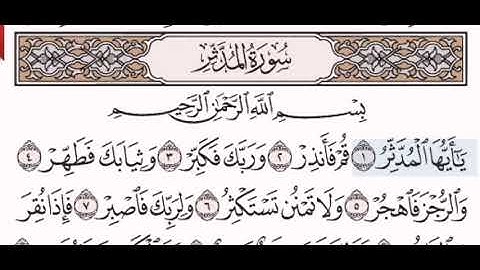 سُورَةُ المُدَّثِّر
بِسْمِ اللَّهِ الرَّحْمَٰنِ الرَّحِيمِ
يَٰٓأَيُّهَا ٱلْمُدَّثِّرُ ١ قُمْ فَأَنذِرْ ٢ وَرَبَّكَ فَكَبِّرْ ٣ وَثِيَابَكَ فَطَهِّرْ ٤
وَٱلرُّجْزَ فَٱهْجُرْ ٥ وَلَا تَمْنُن تَسْتَكْثِرُ ٦ وَلِرَبِّكَ فَٱصْبِرْ ٧ فَإِذَا نُقِرَ